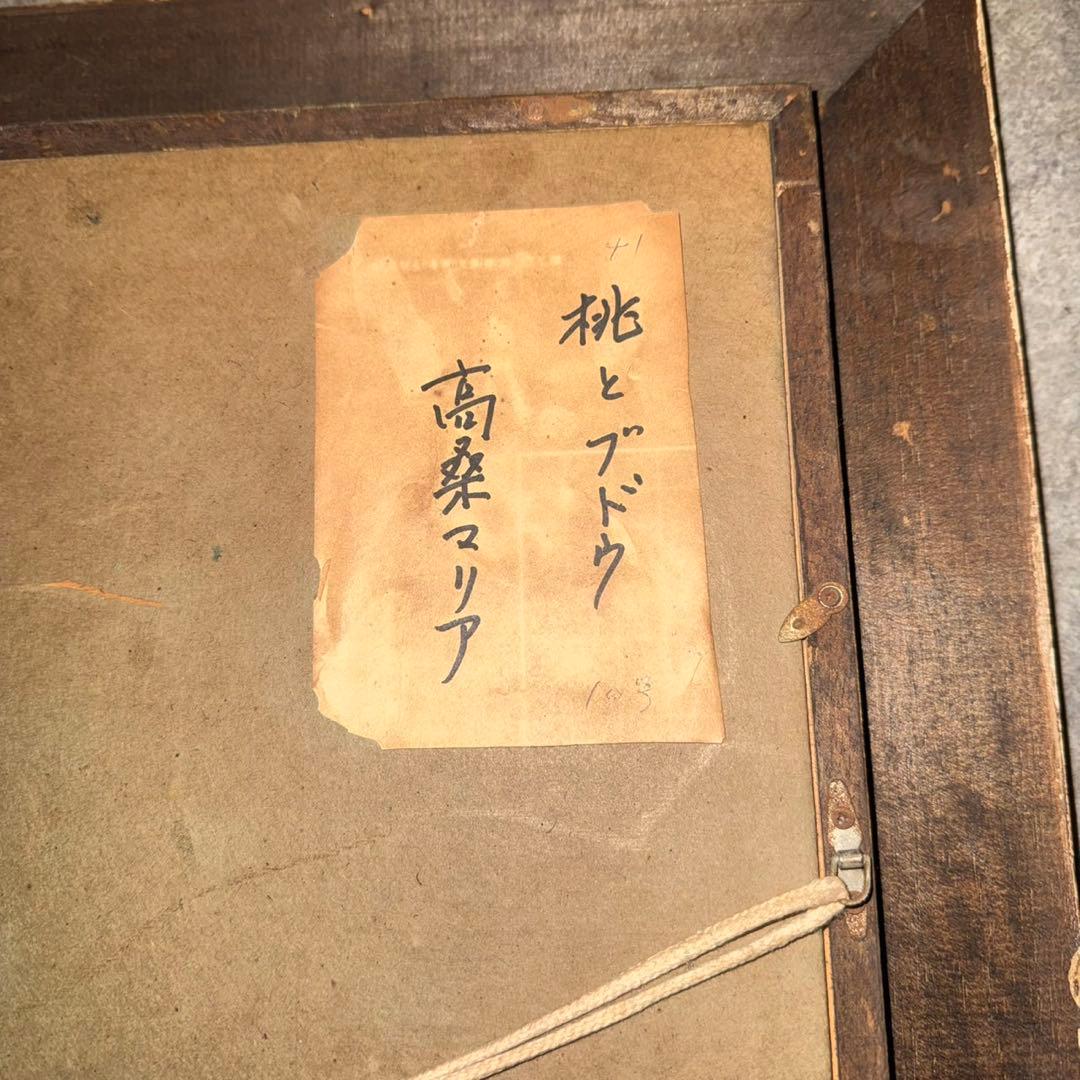 41
桃とブドウ
高桑マリア
10号